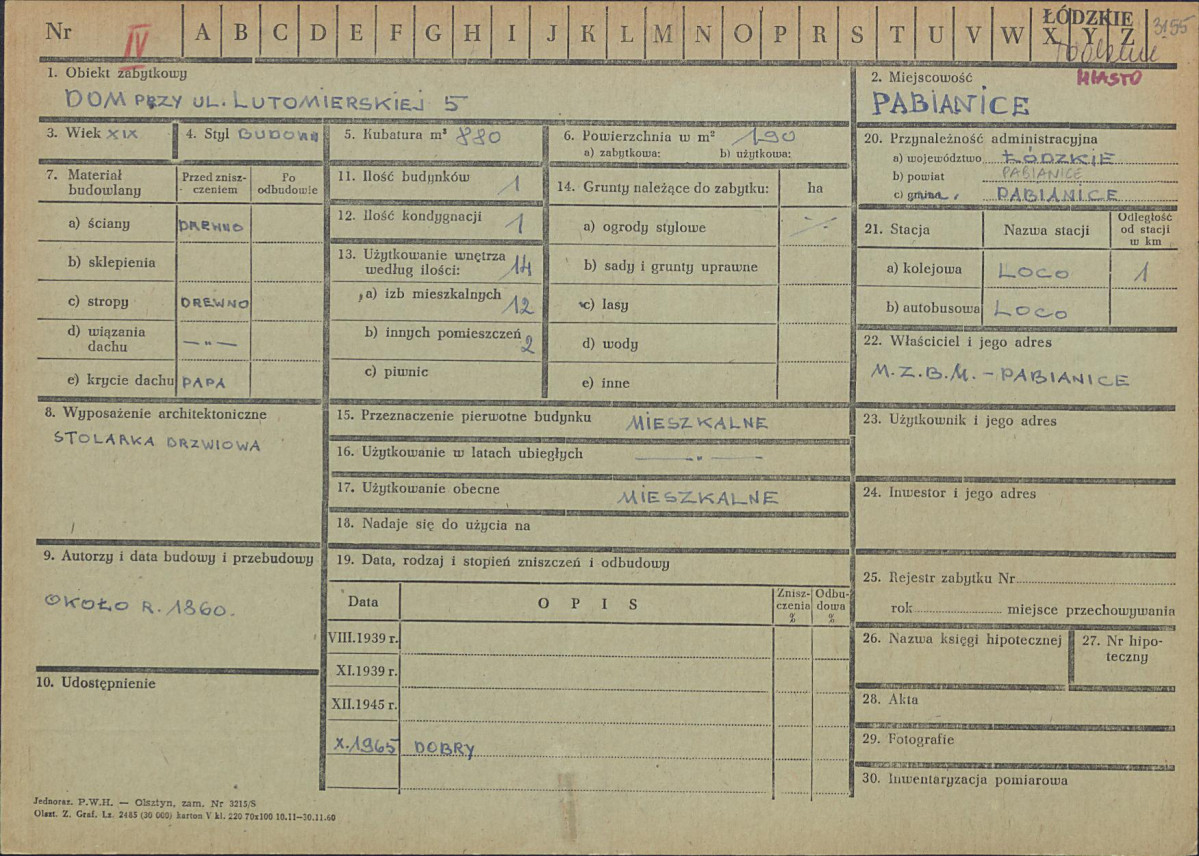 Nr IV A B C D E F G H I J K L M N O P R S T U V W X Y Z
ŁÓDZKIE
3155
MIASTO
1. Obiekt zabytkowy
DOM PRZY UL. LUTOMIERSKIEJ 5
2. Miejscowość
PABIANICE
3. Wiek XIX
4. Styl
5. Kubatura m³ 880
6. Powierzchnia w m² 190
a) zabytkowa: b) użytkowa:
7. Materiał budowlany
Przed zniszczeniem
Po odbudowie
a) ściany DREWNO
b) sklepienia
c) stropy DREWNO
d) wiązania dachu — „ —
e) krycie dachu PAPA
8. Wyposażenie architektoniczne
STOLARKA DRZWIOWA
9. Autorzy i data budowy i przebudowy
OKOŁO R. 1860.
10. Udostępnienie
11. Ilość budynków 1
12. Ilość kondygnacji 1
13. Użytkowanie wnętrza
według ilości: 14
a) izb mieszkalnych 12
b) innych pomieszczeń 2
c) piwnic
14. Grunty należące do zabytku: ha
a) ogrody stylowe -/-
b) sady i grunty uprawne
c) lasy
d) wody
e) inne
15. Przeznaczenie pierwotne budynku MIESZKALNE
16. Użytkowanie w latach ubiegłych — „ —
17. Użytkowanie obecne MIESZKALNE
18. Nadaje się do użycia na
19. Data, rodzaj i stopień zniszczeń i odbudowy
Data OPIS Zniszczenia % Odbudowa %
VIII.1939 r.
XI.1939 r.
XII.1945 r.
X.1965 DOBRY
20. Przynależność administracyjna
a) województwo ŁÓDZKIE
b) powiat PABIANICE
c) gmina PABIANICE
21. Stacja Nazwa stacji Odległość od stacji w km
a) kolejowa LOCO 1
b) autobusowa LOCO
22. Właściciel i jego adres
M.Z.B.M. - PABIANICE
23. Użytkownik i jego adres
24. Inwestor i jego adres
25. Rejestr zabytku Nr
rok miejsce przechowywania
26. Nazwa księgi hipotecznej
27. Nr hipoteczny
28. Akta
29. Fotografie
30. Inwentaryzacja pomiarowa
Jednoraz. P.W.H. — Olsztyn, zam. Nr 3215/S
Olszt. Z. Graf. Lz. 2485 (30 000) karton V kl. 220 70x100 10.11—30.11.60